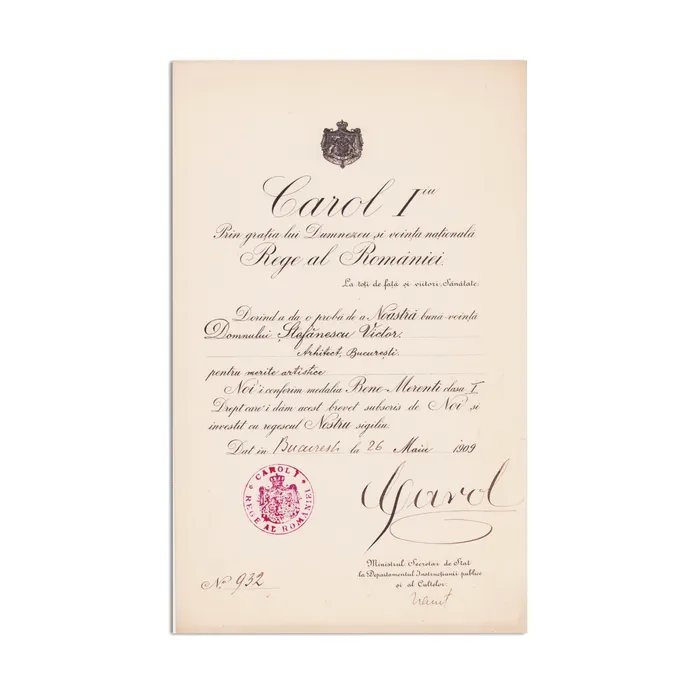 Carol I iu
Prin grația lui Dumnezeu și voința națională
Rege al României.
La toți de față și viitori, Sănătate.
Dorind a da o probă de a Noastră bună-voință
Domnului Ștefănescu Victor.
Arhitect, București.
pentru merite artistice
Noi 'i conferim medalia Bene-Merenti clasa I
Drept care-i dăm acest brevet subscris de Noi și
investit cu regescul Nostru sigiliu.
Dat in București la 26 Maiu 1909
CAROL I
REGE AL ROMÂNIEI
Carol
Ministrul Secretar de Stat
la Departamentul Instrucțiunii publice
și al Cultelor.
No 932